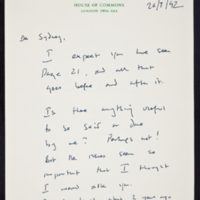 HOUSE OF COMMONS
LONDON SW1A 0AA
20/9/92
Dear Sydney,
I expect you have seen
Page 21, and all that
goes before and after it.
Is there anything useful
to be said or done
by me? Perhaps not!
But the issues seem so
important that I thought
I would ask you.
years ago